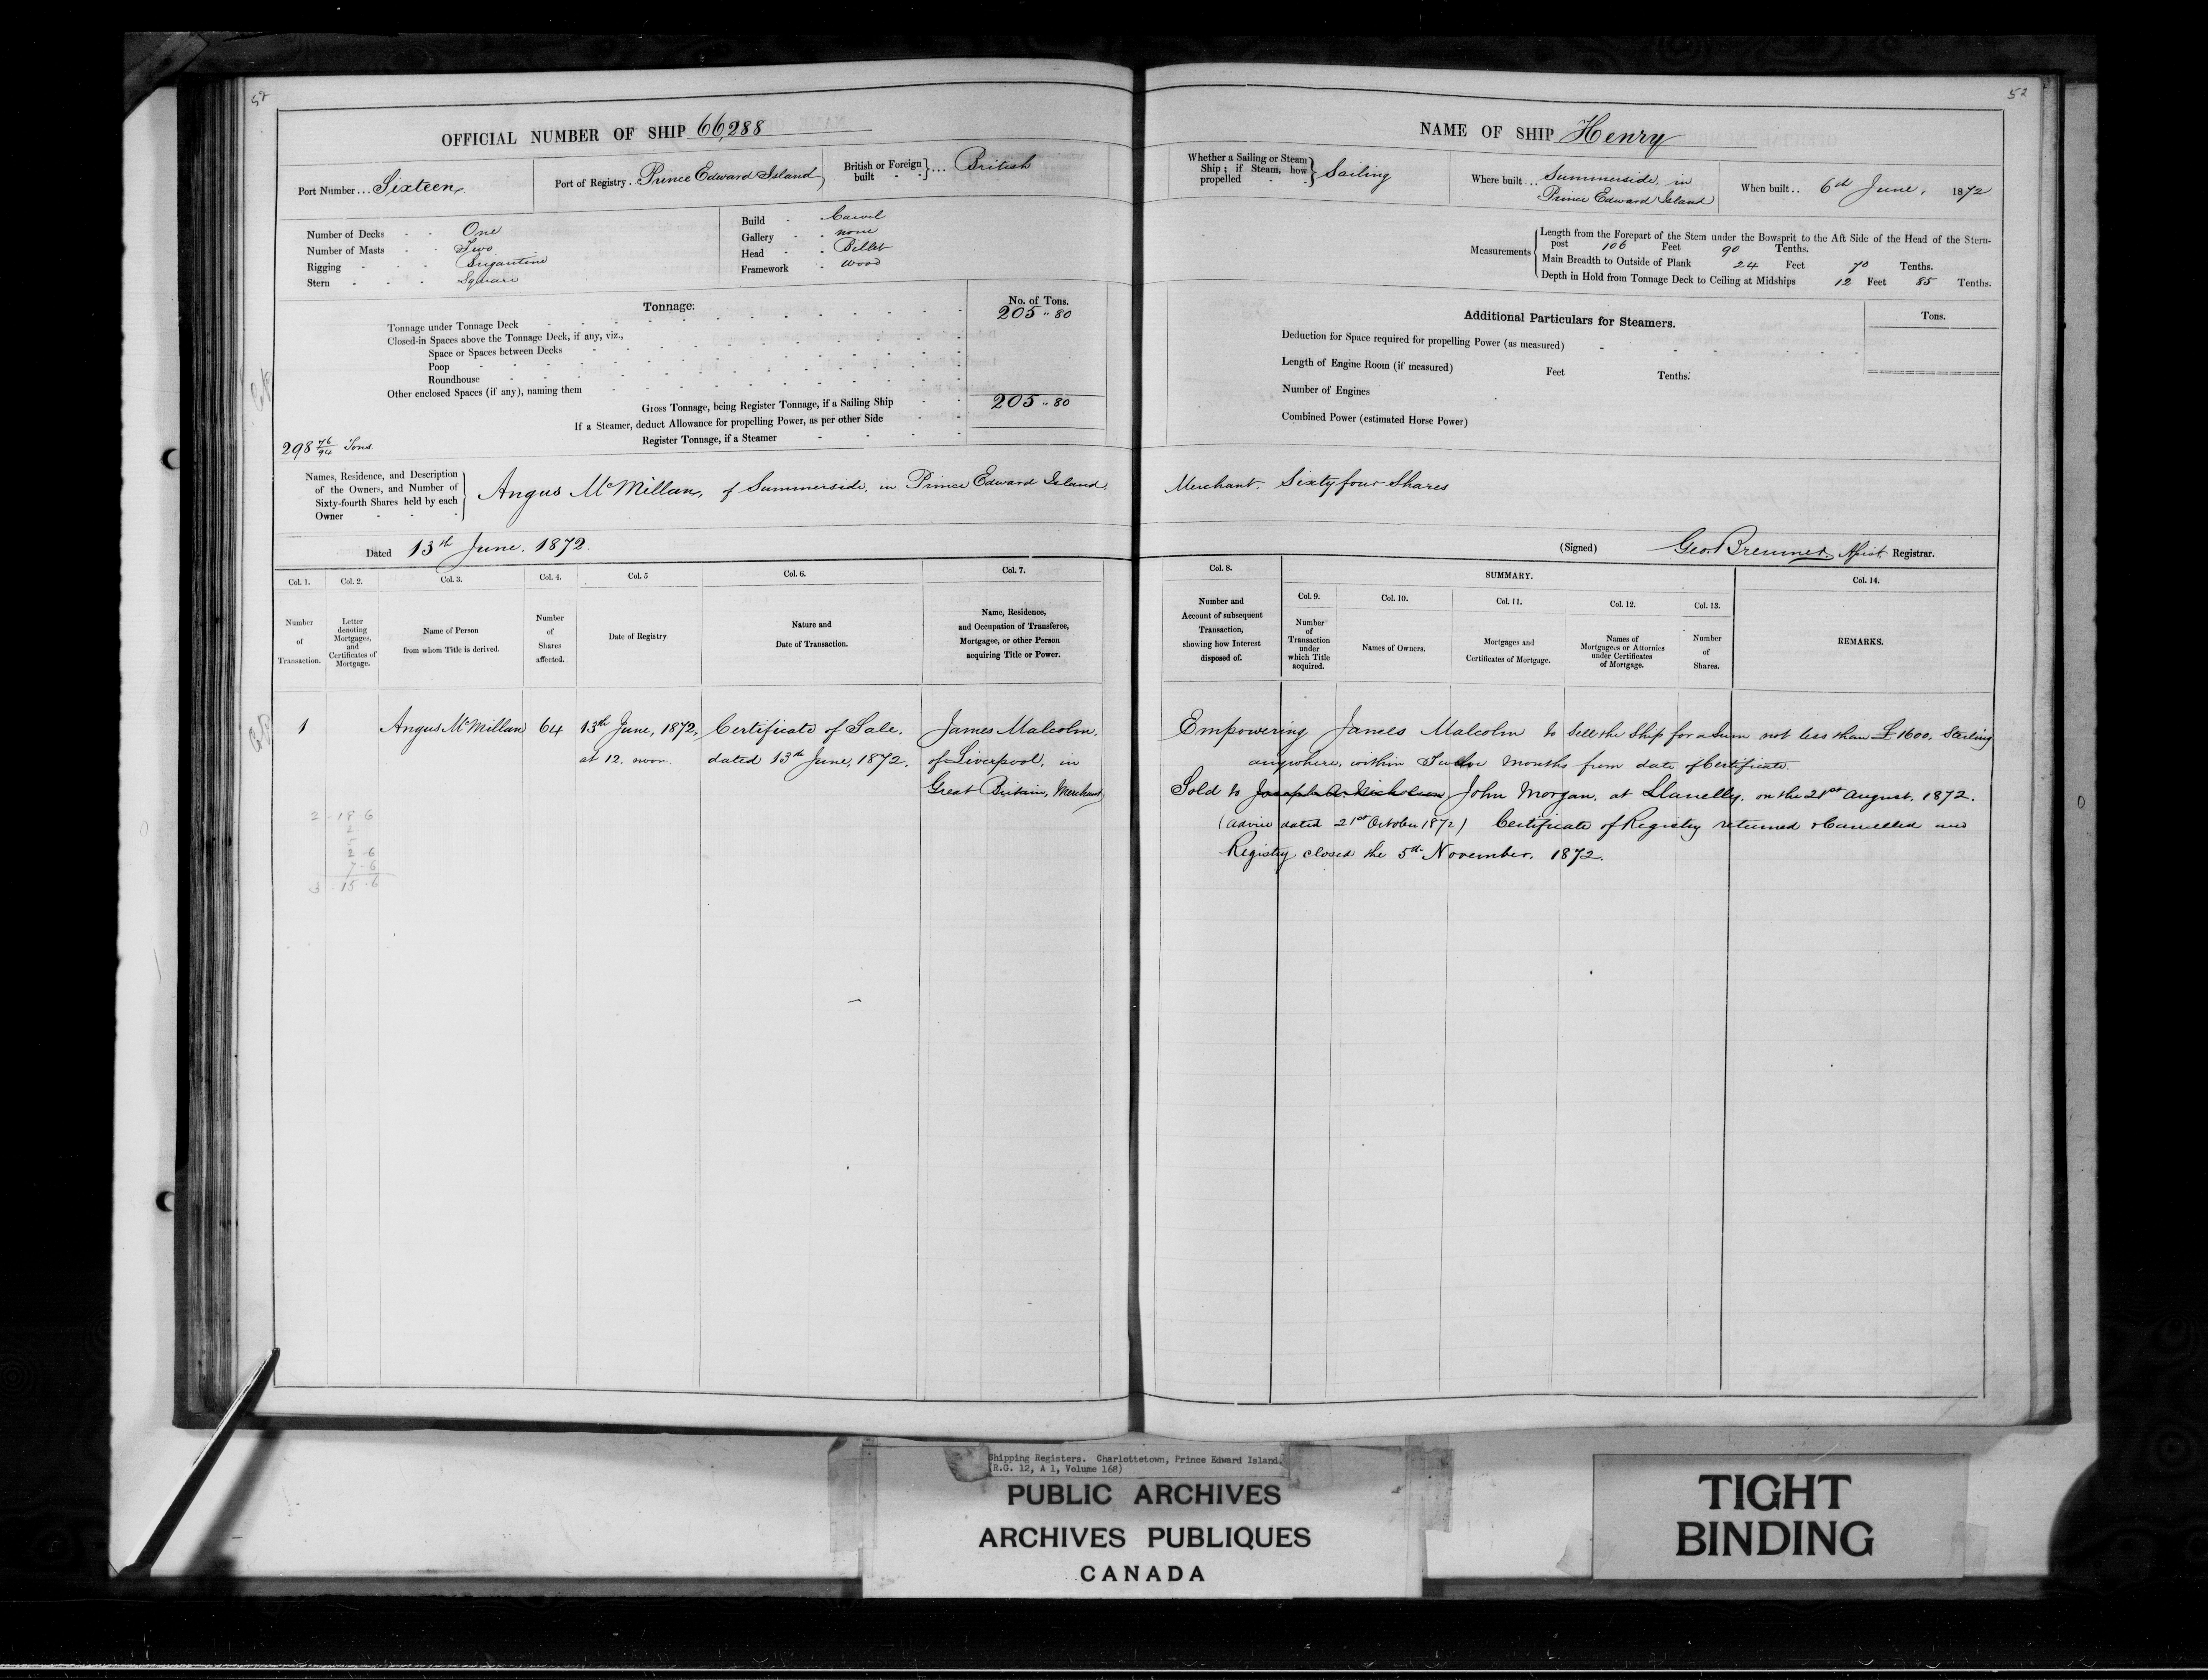 52
OFFICIAL NUMBER OF SHIP 66,288
Port Number ... Sixteen
Port of Registry . Prince Edward Island
British or Foreign built - - } ... British
Number of Decks - - One
Number of Masts - - Two
Rigging - - - Brigantine
Stern - - - Square
Build - Carvel
Gallery - - none
Head - - Billet
Framework - Wood
Tonnage.
No. of Tons.
Tonnage under Tonnage Deck 205 .. 80
Closed-in Spaces above the Tonnage Deck, if any, viz.,
Space or Spaces between Decks
Poop
Roundhouse
Other enclosed Spaces (if any), naming them
Gross Tonnage, being Register Tonnage, if a Sailing Ship 205 .. 80
If a Steamer, deduct Allowance for propelling Power, as per other Side
Register Tonnage, if a Steamer
298 76/94 Tons.
Names, Residence, and Description
of the Owners, and Number of
Sixty-fourth Shares held by each
Owner
Angus McMillan, of Summerside, in Prince Edward Island,
Dated 13th June, 1872.
Col. 1. Col. 2. Col. 3. Col. 4. Col. 5 Col. 6. Col. 7.
Number of Transaction.
Letter denoting Mortgages, and Certificates of Mortgage.
Name of Person from whom Title is derived.
Number of Shares affected.
Date of Registry.
Nature and Date of Transaction.
Name, Residence, and Occupation of Transferee, Mortgagee, or other Person acquiring Title or Power.
1 Angus McMillan 64 13th June, 1872, Certificate of Sale, James Malcolm,
at 12. noon. dated 13th June, 1872. of Liverpool, in
Great Britain, Merchant
2 - 18 - 6
2
5
2 - 6
7 - 6
3 - 15 - 6
52
NAME OF SHIP Henry
Whether a Sailing or Steam Ship ; if Steam, how propelled - } Sailing
Where built ... Summerside, in
Prince Edward Island
When built .. 6th June, 1872
Measurements
Length from the Forepart of the Stem under the Bowsprit to the Aft Side of the Head of the Stern-
post 106 Feet 90 Tenths.
Main Breadth to Outside of Plank 24 Feet 70 Tenths.
Depth in Hold from Tonnage Deck to Ceiling at Midships 12 Feet 85 Tenths.
Additional Particulars for Steamers.
Tons.
Deduction for Space required for propelling Power (as measured)
Length of Engine Room (if measured) Feet Tenths.
Number of Engines
Combined Power (estimated Horse Power)
Merchant. Sixty four Shares
(Signed) Geo. Bremner, Assist. Registrar.
Col. 8. SUMMARY. Col. 14.
Col. 9. Col. 10. Col. 11. Col. 12. Col. 13.
Number and Account of subsequent Transaction, showing how Interest disposed of.
Number of Transaction under which Title acquired.
Names of Owners.
Mortgages and Certificates of Mortgage.
Names of Mortgagees or Attornies under Certificates of Mortgage.
Number of Shares.
REMARKS.
Empowering James Malcolm to sell the Ship for a Sum not less than £1600, Sterling
anywhere, within Twelve months from date of Certificate.
Sold to Joseph A. Nicholson John Morgan, at Llanelly, on the 21st August, 1872.
(Advice dated 21st October 1872) Certificate of Registry returned & Cancelled and
Registry closed the 5th November, 1872.
Shipping Registers. Charlottetown, Prince Edward Island.
(R.G. 12, A 1, Volume 168)
PUBLIC ARCHIVES
ARCHIVES PUBLIQUES
CANADA
TIGHT
BINDING